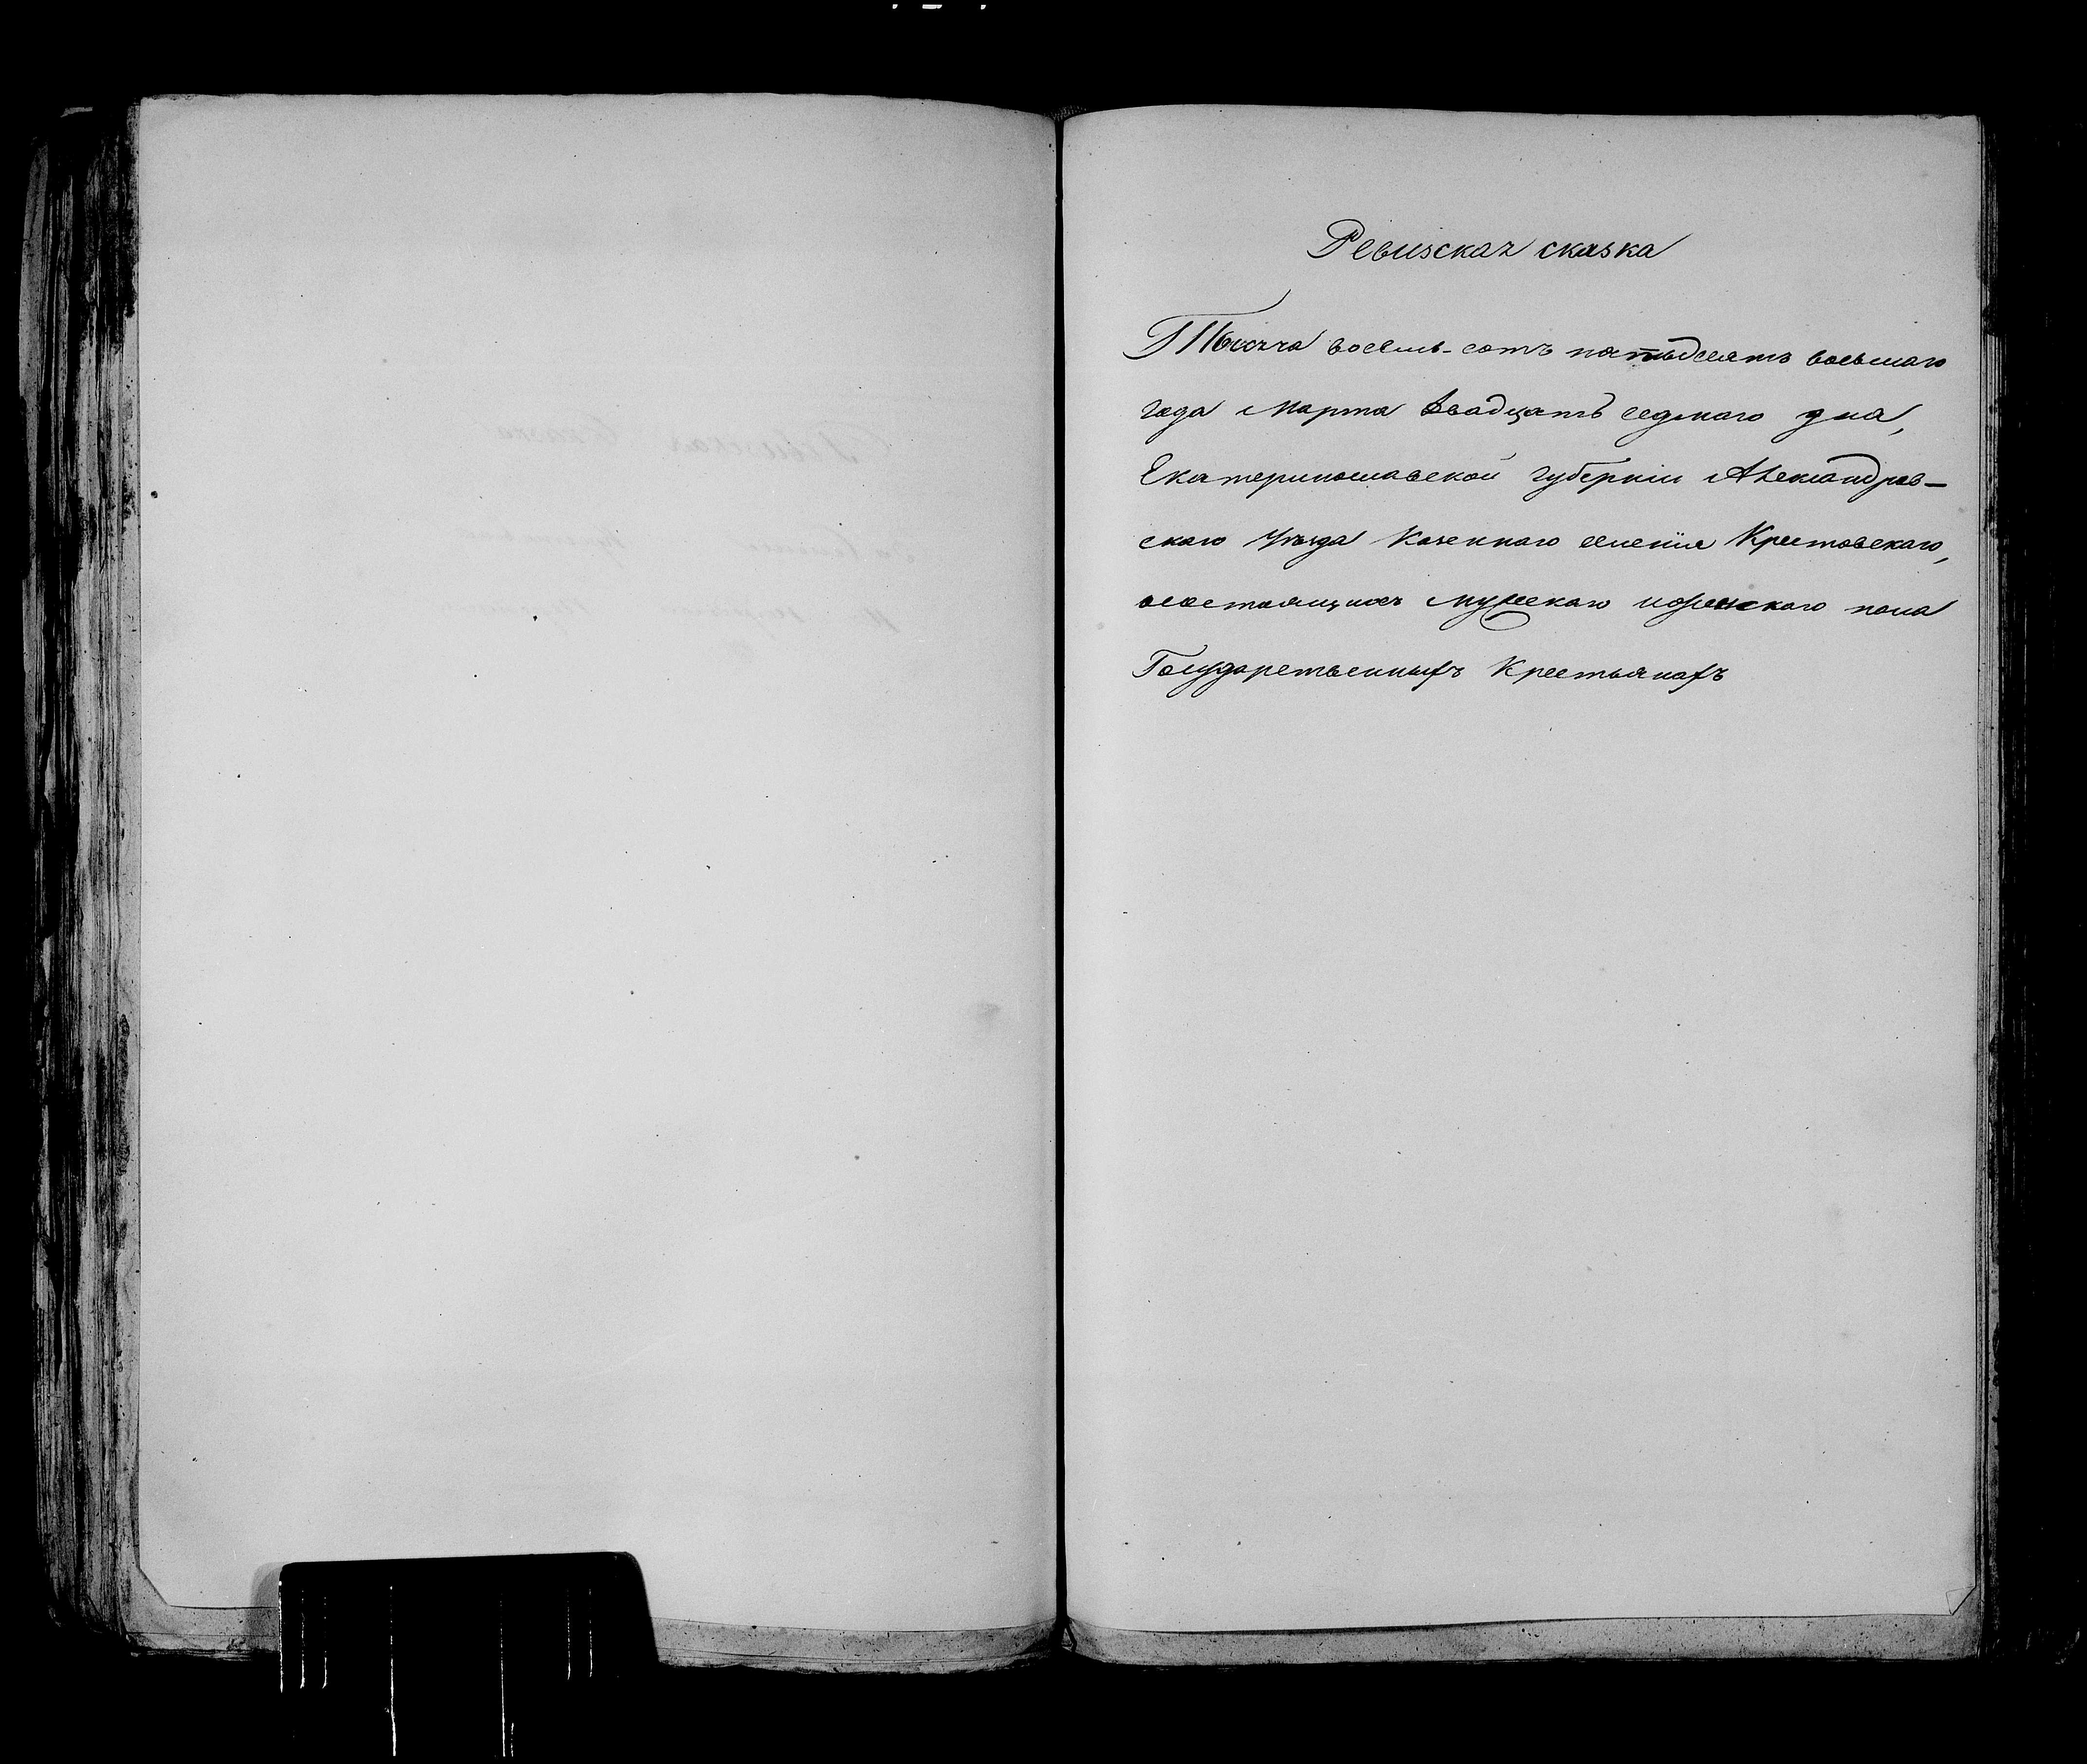 Ревизская сказка
Тысяча восемь-сотъ пятьдесятъ восьмаго
года Марта двадцать седмаго дня,
Екатеринославской губерніи Александров-
скаго уѣзда Казеннаго селенія Крестовскаго,
о состоящихъ мужескаго и женскаго пола
Государственныхъ Крестьянахъ